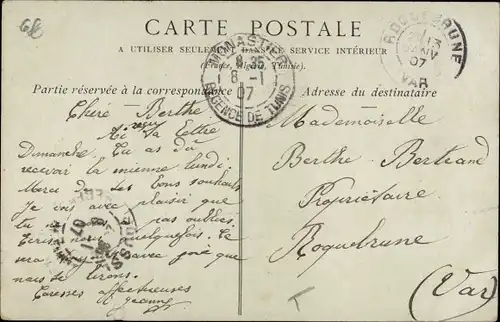 CARTE POSTALE
A UTILISER SEULEMENT DANS LE SERVICE INTÉRIEUR
(France, Algérie, Tunisie).
Partie réservée à la correspondance
Adresse du destinataire
MONASTIER
8 35
8 -1
07
RÉGENCE DE TUNIS
ROQUEBRUNE
13
07
VAR
Chère Berthe
Ai reçu ta lettre
Dimanche. Tu as dû
recevoir la mienne lundi.
Merci de tes bons souhaits
Je vois avec plaisir que
tu pas oubliée.
Écris nous quelquefois. Ce
sera avec joie que
nous te lirons.
Caresses affectueuses
Jeanne
Mademoiselle
Berthe Bertrand
Propriétaire
Roquebrune
(Var)
T